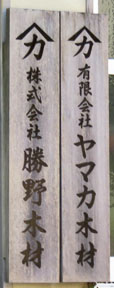 カ
有限会社
ヤマカ木材
カ
株式会社
勝野木材